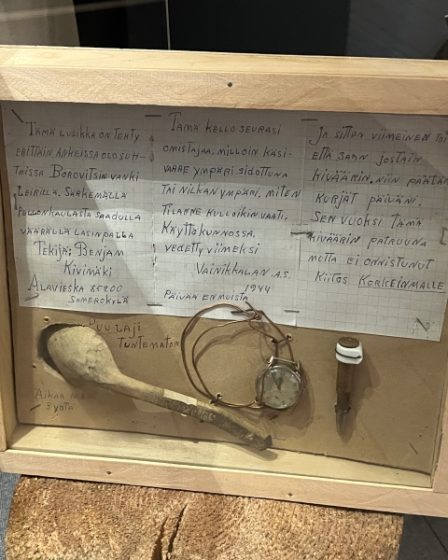 TÄMÄ LUSIKKA ON TEHTY
ERITTÄIN ANKEISSA OLOSUH-
TEISSA BOROVITSIN VANKI
LEIRILLÄ. SÄRKEMÄLLÄ
PULLONKAULASTA SAADULLA
LASINPALLA
TEKIJÄ: BENJAM
KIVIMÄKI
ALAVIESKA 85200
SOMEROKYLÄ
TÄMÄ KELLO SEURASI
OMISTAJAA, MILLOIN KÄSI-
VARRE YMPÄRI SIDOTTUNA
TAI NILKAN YMPÄRI, MITEN
TILANNE KULLOIKIN VAATI.
KÄYTTÖKUNNOSSA.
VEDETTY VIIMEKSI
VAINIKKALAN A.S.
1944
PÄIVÄÄ EN MUISTA
JA SITTEN VIIMEINEN
ETTÄ SAAN JOSTAIN
KIVÄÄRIN. NIIN PÄÄTÄN
KURJAT PÄIVÄNI.
SEN VUOKSI TÄMÄ
KIVÄÄRIN PATRUUNA
MUTTA EI ONNISTUNUT
KIITOS KORKEIMMALLE
PUU LAJI
TUNTEMATON
AIKAA
3 YÖTÄ